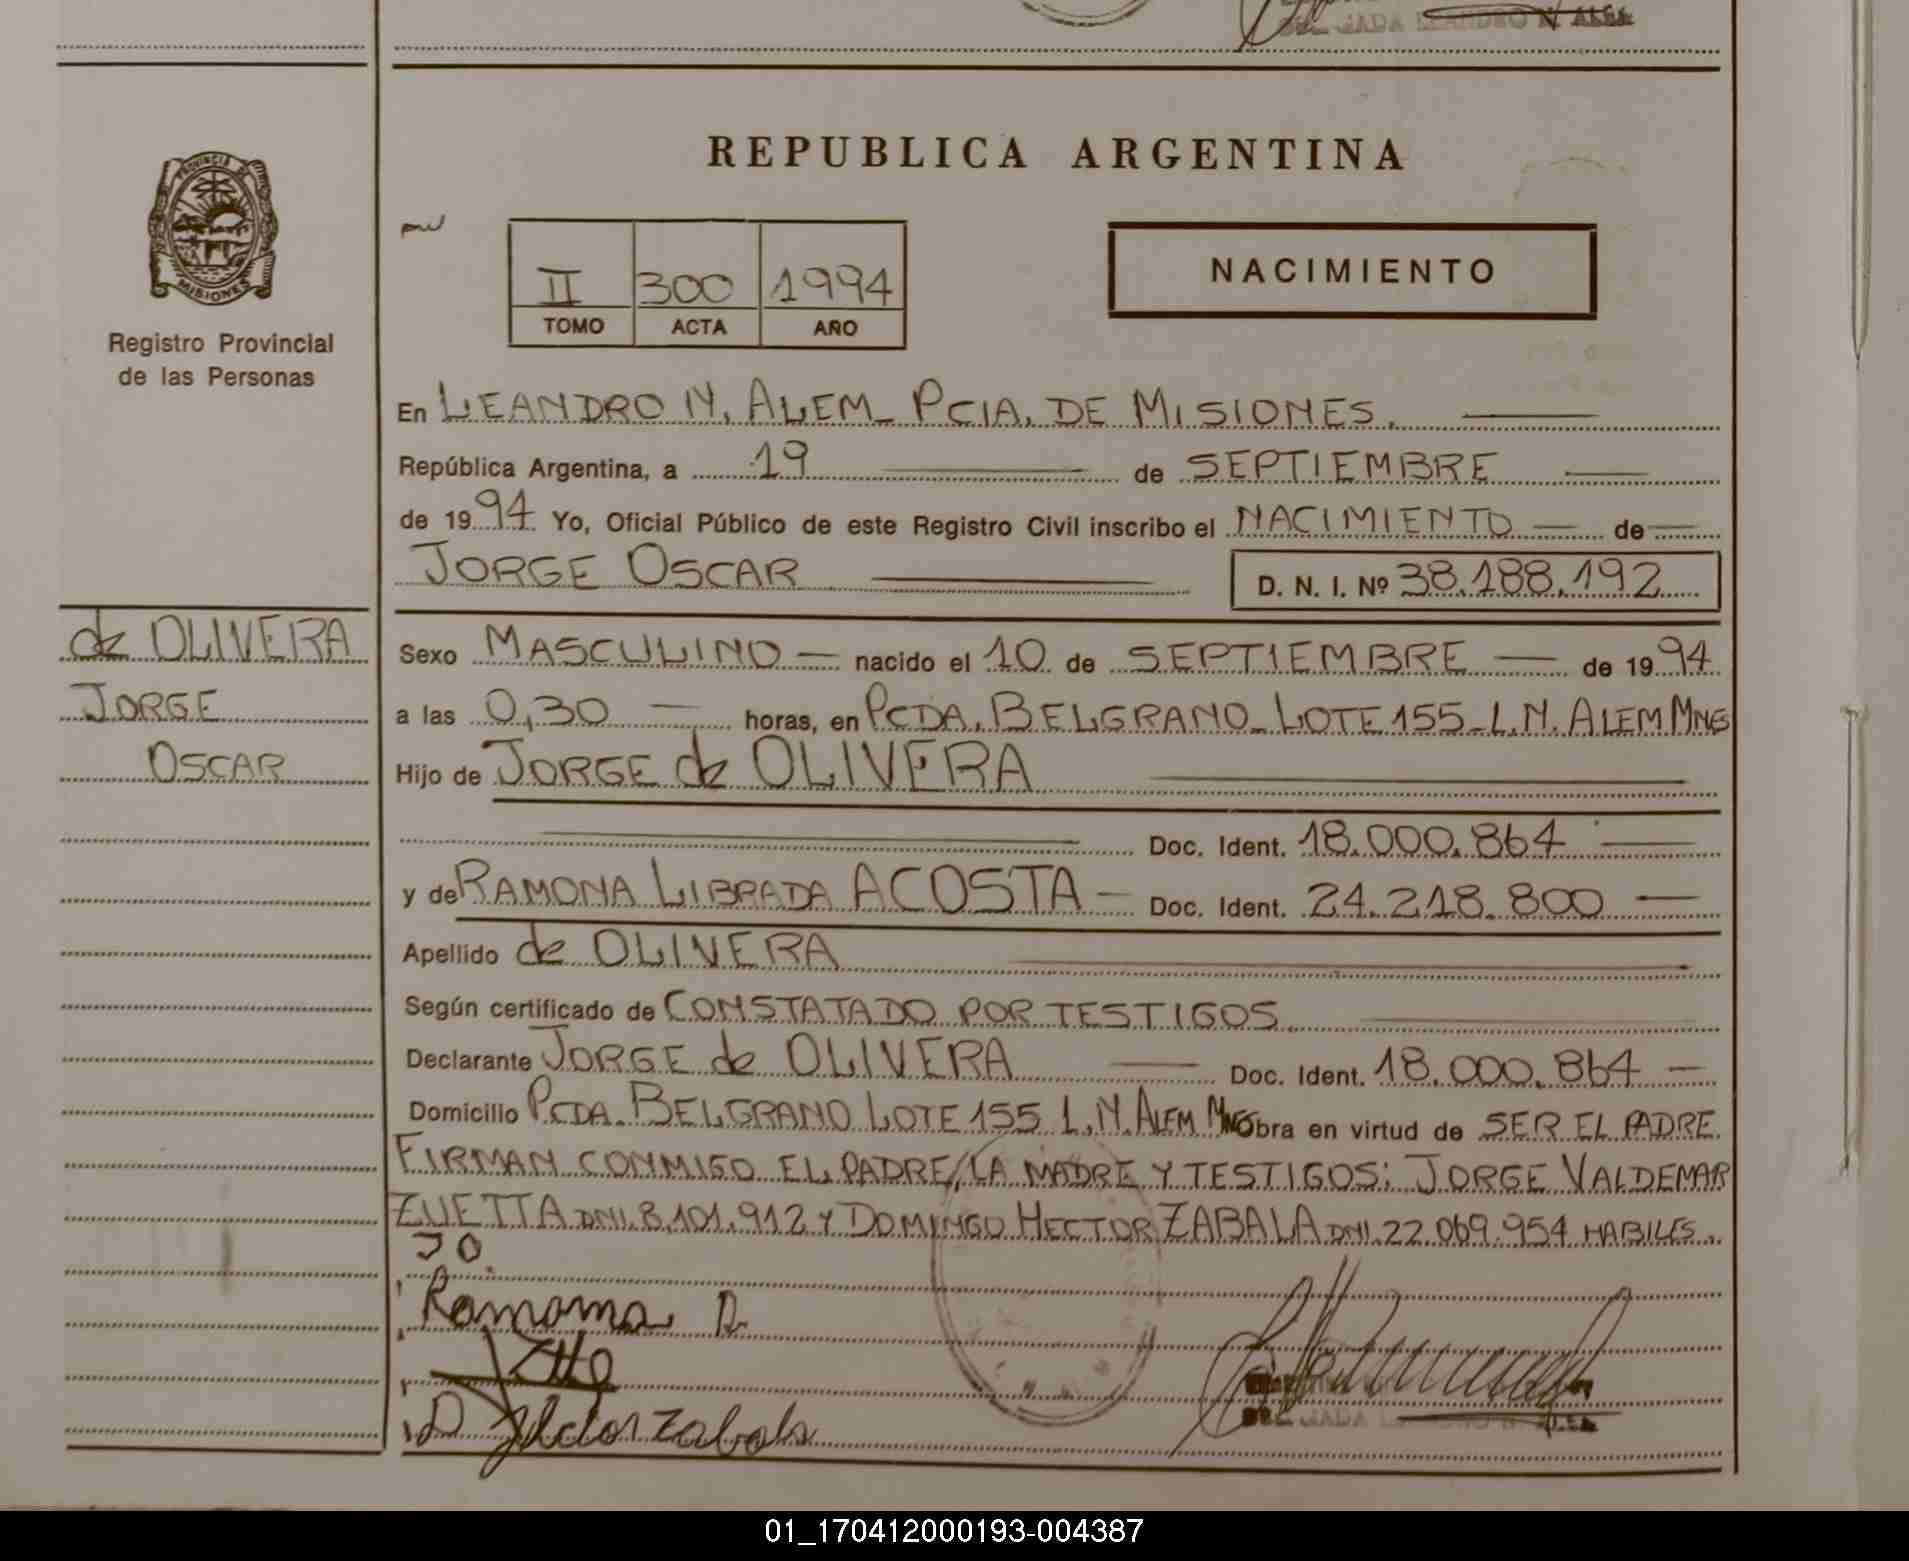 REPUBLICA ARGENTINA
PROVINCIA DE
MISIONES
Registro Provincial
de las Personas
II 300 1994
TOMO ACTA AÑO
NACIMIENTO
En LEANDRO N. ALEM_ PCIA. DE MISIONES.
República Argentina, a 19 de SEPTIEMBRE
de 1994 Yo, Oficial Público de este Registro Civil inscribo el NACIMIENTO de
JORGE OSCAR D. N. I. Nº 38.188.192
de OLIVEIRA
JORGE
OSCAR
Sexo MASCULINO nacido el 10 de SEPTIEMBRE de 1994
a las 0,30 horas, en PCDA. BELGRANO_ LOTE 155_ L.N. ALEM MNES
Hijo de JORGE de OLIVERA
Doc. Ident. 18.000.864
y de RAMONA LIBRADA ACOSTA Doc. Ident. 24.218.800
Apellido de OLIVERA
Según certificado de CONSTATADO POR TESTIGOS
Declarante JORGE de OLIVERA Doc. Ident. 18.000.864
Domicilio PCDA. BELGRANO LOTE 155 L.N. ALEM MNES Obra en virtud de SER EL PADRE
FIRMAN CONMIGO EL PADRE, LA MADRE Y TESTIGOS: JORGE VALDEMAR
ZUETTA DNI. 8.101.912 Y DOMINGO HECTOR ZABALA DNI. 22.069.954 HABILES.
JO
Ramoma A
01_170412000193-004387